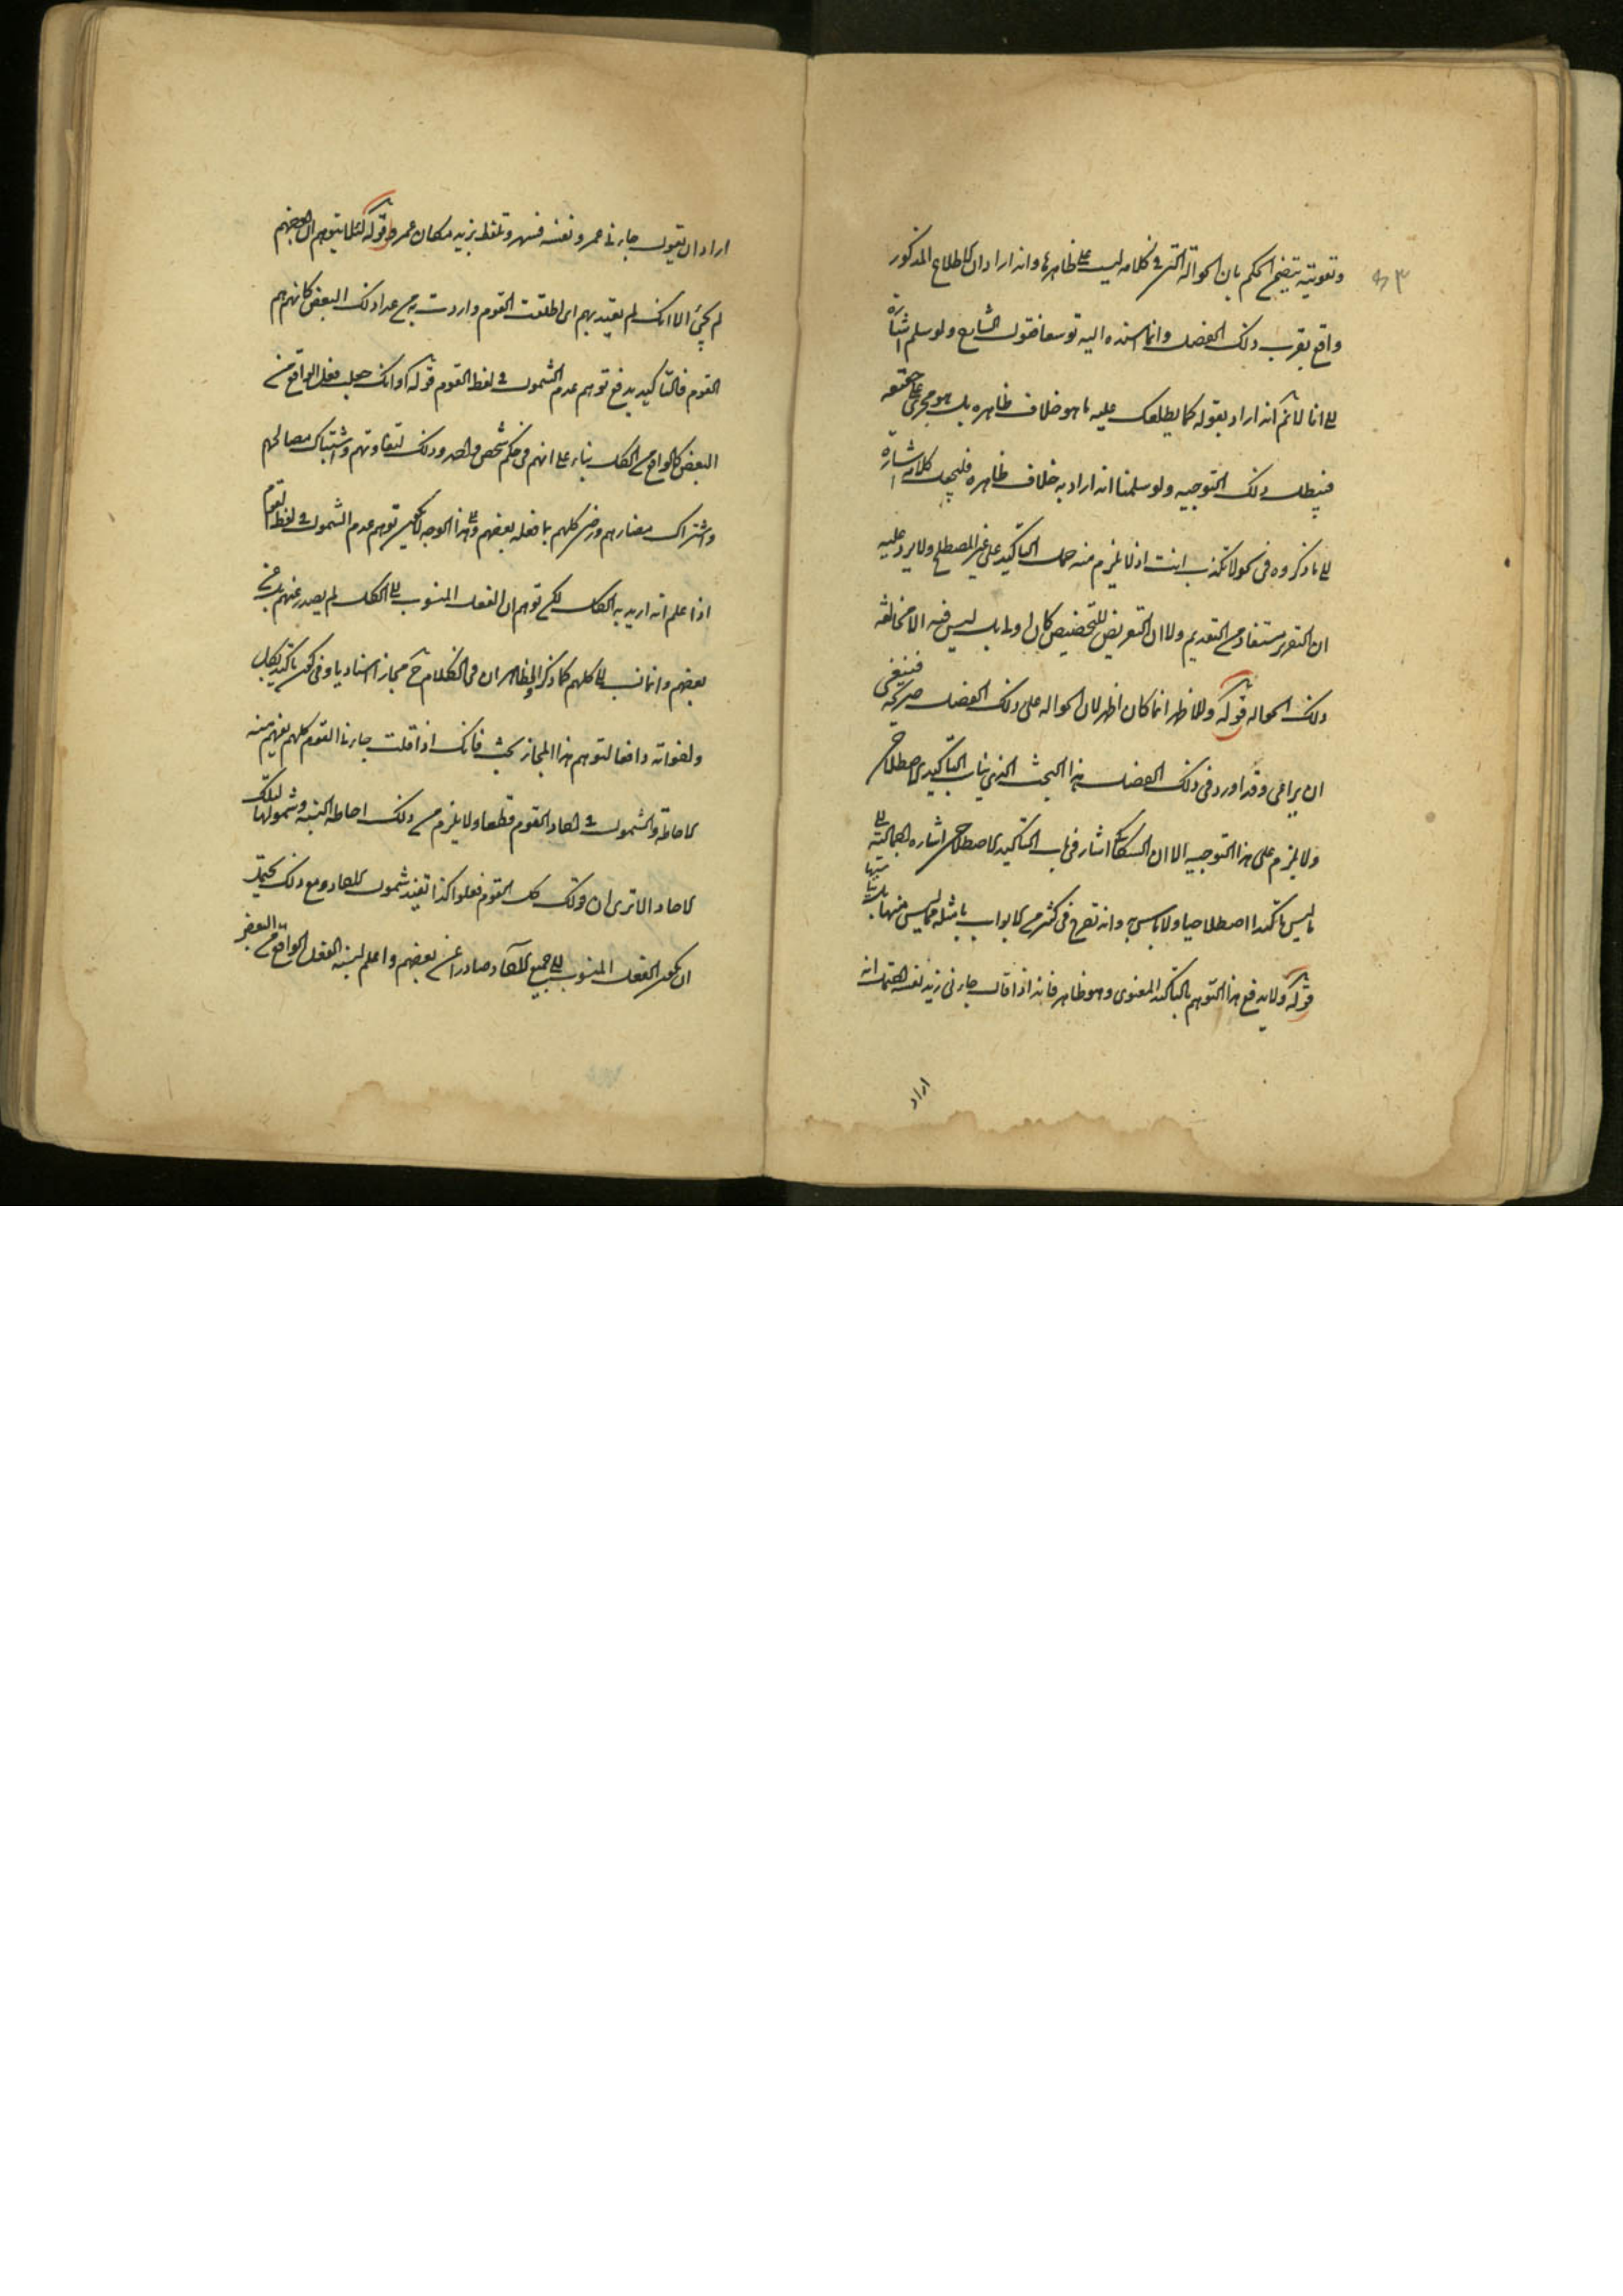 وتقويته يتضح الحكم بان الحوالة التى فى كلامه ليست على ظاهرها وانه اراد ان الاطلاع المذكور
واقع بقرب ذلك الفصل وانما اسنده اليه توسعا فنقول الشارح ولو سلم اشارة
الى انا لا نم انه اراد بقوله كما يطلعك عليه ما هو خلاف ظاهره بل هو مجرى على حقيقته
فيبطل ذلك التوجيه ولو سلمنا انه اراد به خلاف ظاهره فليجعل كلامه اشارة
الى ما ذكروه فى نحو لا تكذب انت اذ لا يلزم منه حمل التاكيد على غير المصطلح ولا يرد عليه
ان التقرير مستفاد من التقديم ولا ان التعريض للتخصيص كالاول بل ليس فيه الا مخالفة
ذلك الحواله قوله والاظهر انما كان اظهر لان الحواله على ذلك الفصل صريحة فينبغى
ان يراعى وقد اورد فى ذلك الفصل هذا البحث الذى يناسب التاكيد الاصطلاحى
ولا يلزم على هذا التوجيه الا ان السكاكى اشار فى باب التاكيد الاصطلاحى اشارة اجمالية الى
ما ليس تاكيدا اصطلاحيا ولا باس به وانه تصرح فى كثير من الابواب بامثلة مما ليس منها بل يناسبها
قوله ولا يدفع هذا التوهم بالتاكيد المعنوى وهو ظاهر فانه اذا قال جاءنى زيد نفسه احتمل انه
اراد
اراد ان يقول جاءنى عمرو نفسه فسهى وتلفظ بزيد مكان عمرو قوله لئلا يتوهم ان بعضهم
لم يجئ الا انك لم تعتد بهم اى اطلقت القوم واردت به من عدا ذلك البعض كانهم هم
القوم فالتاكيد يدفع توهم عدم الشمول فى لفظ القوم قوله او انك جعلت فعل الواقع من
البعض كالواقع من الكل بناء على انهم فى حكم شخص واحد وذلك لتعاونهم واشتباك مصالحهم
واشتراك مضارهم ورضى كلهم بما فعله بعضهم وعلى هذا الوجه لا يكون توهم عدم الشمول فى لفظ القوم
اذا علم انه اريد به الكل لكن توهم ان الفعل المنسوب الى الكل لم يصدر عنهم بل عن
بعضهم وانما نسب الى كلهم كما ذكر والظاهر ان فى الكلام ح مجازا اسناديا وفى كون تاكيد بكل
واخواته دافعا لتوهم هذا المجاز بحث فانك اذا قلت جاءنى القوم كلهم يفهم منه
الاحاطة والشمول فى احاد القوم قطعا ولا يلزم من ذلك احاطة النسبة وشمولها لتلك
الاحاد الا ترى ان قولك كل القوم فعلوا كذا تفيد شمول الاحاد ومع ذلك يحتمل
ان يكون الفعل المنسوب الى جميع الاحاد صادرا عن بعضهم واعلم ان نسبة الفعل الواقع من البعض